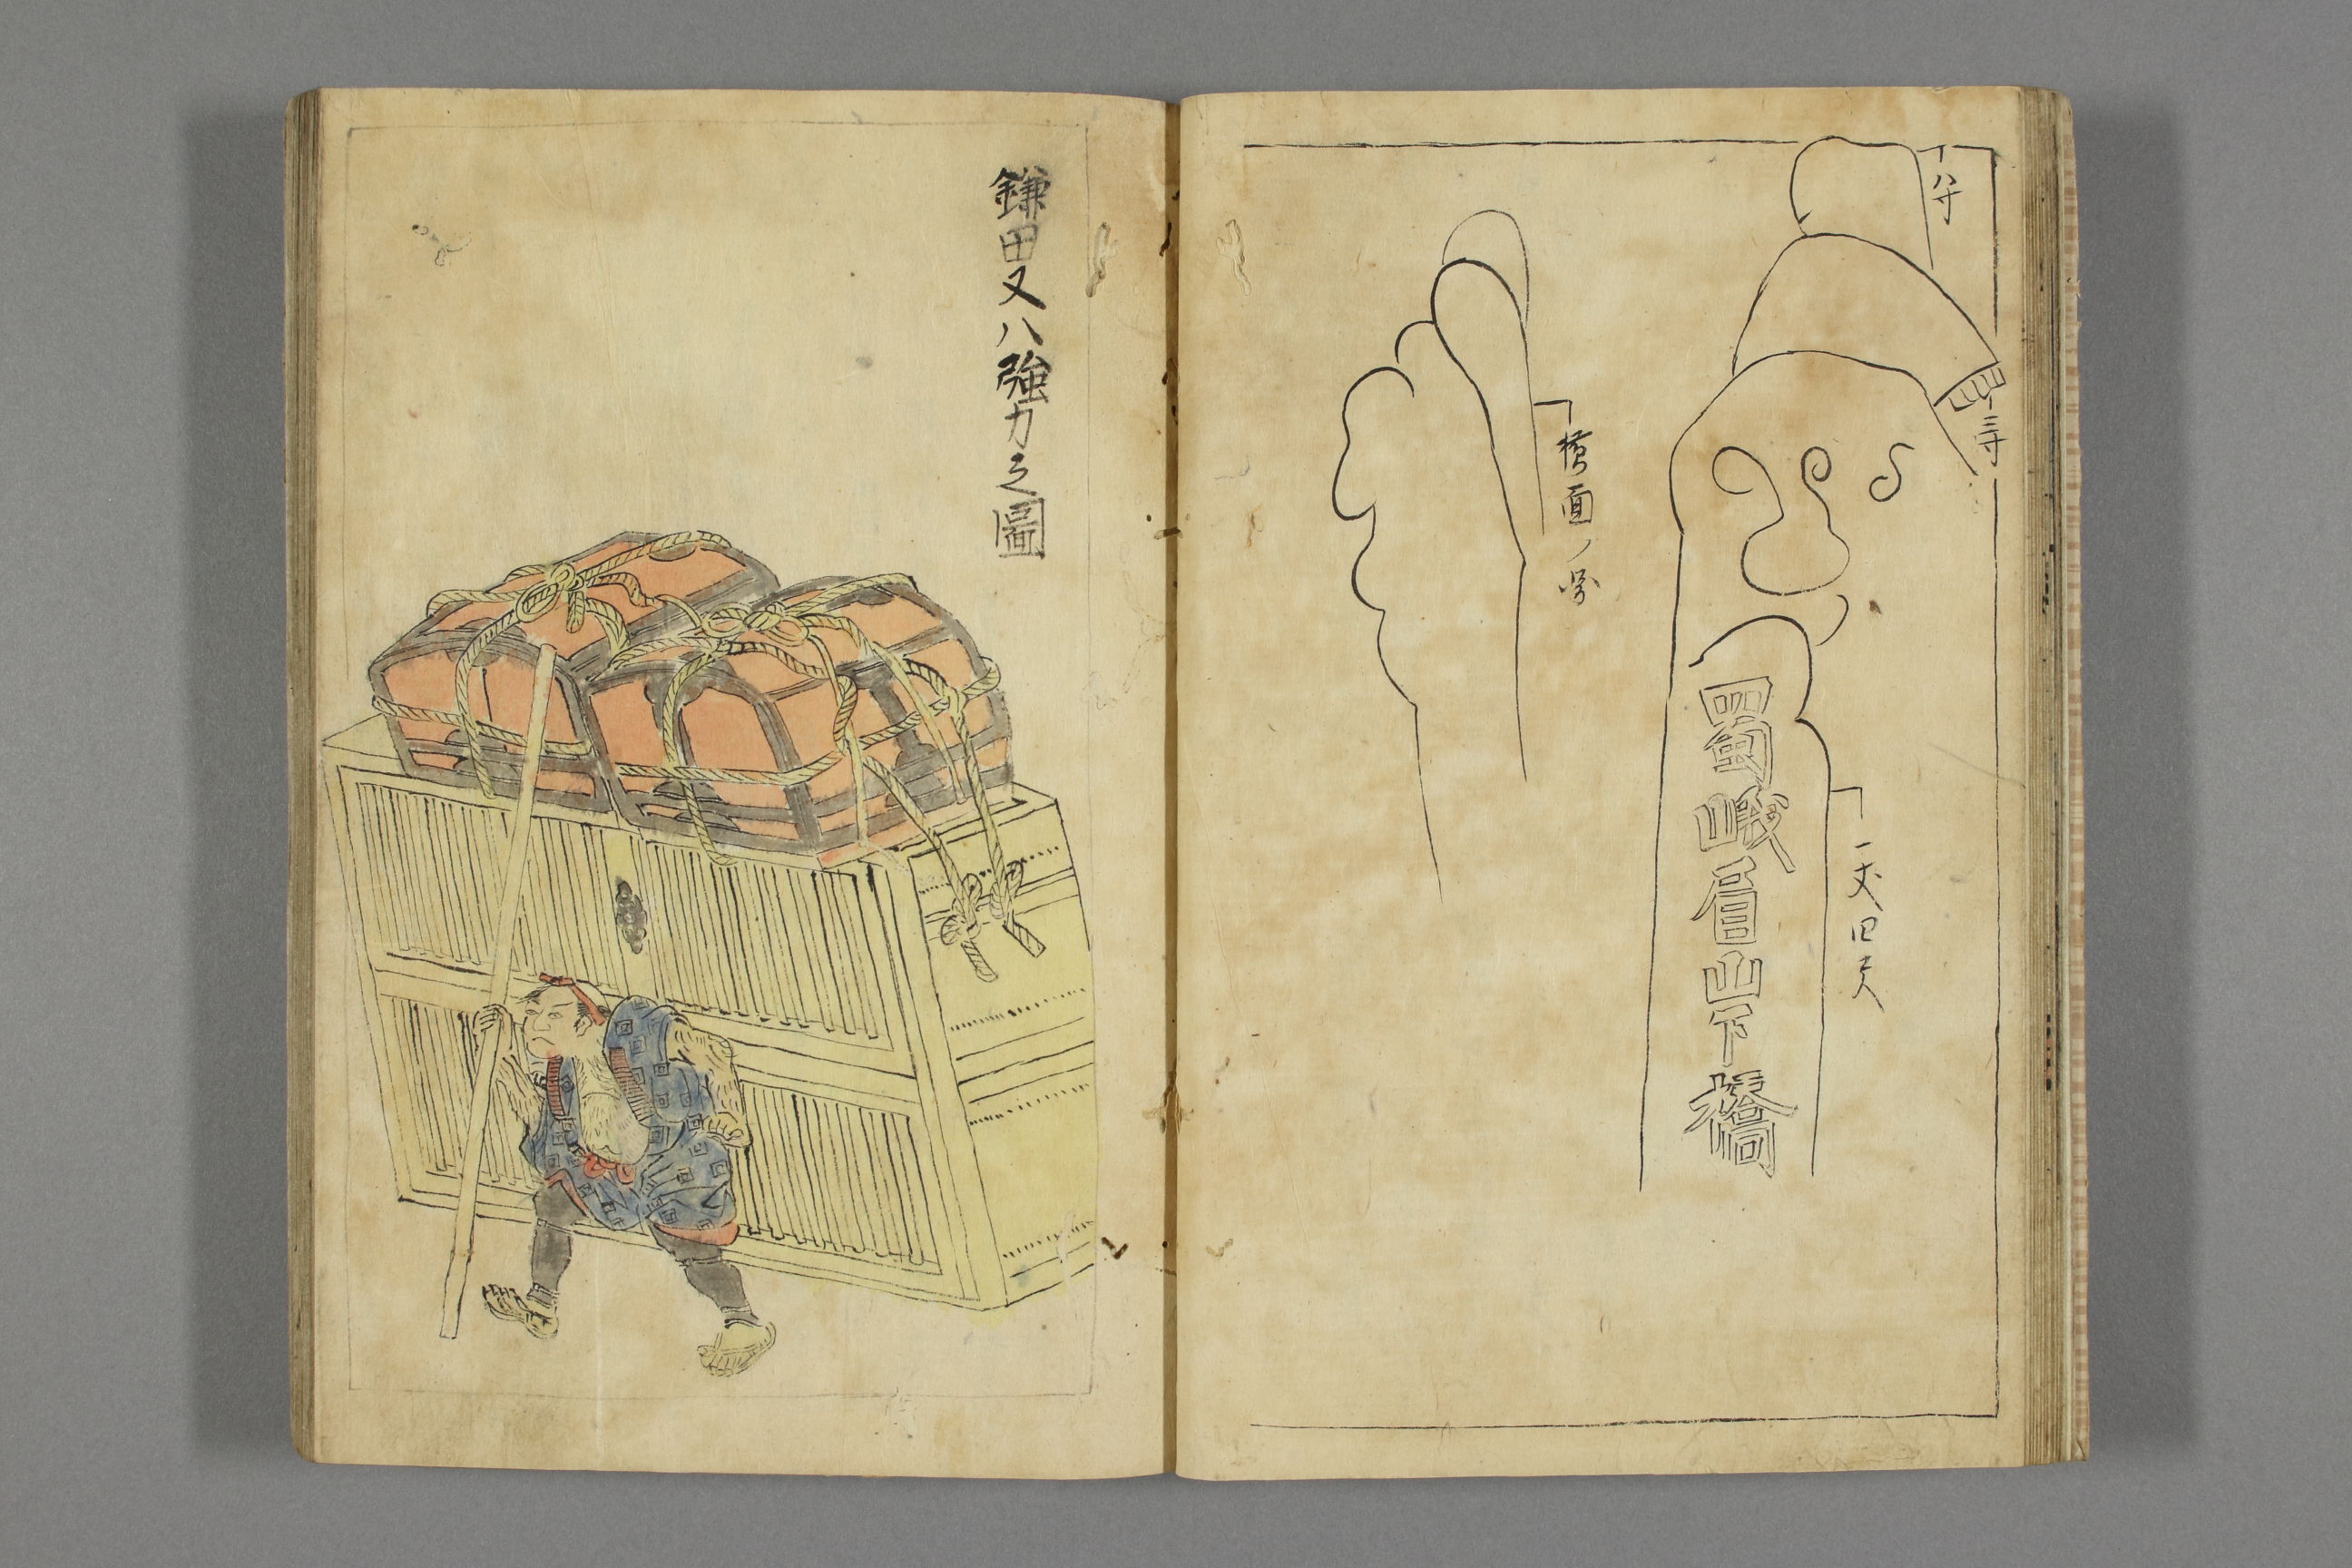 八寸
三寸
蜀峨眉山下橋
一丈四尺
横面ノ
鎌田又八強力之圖